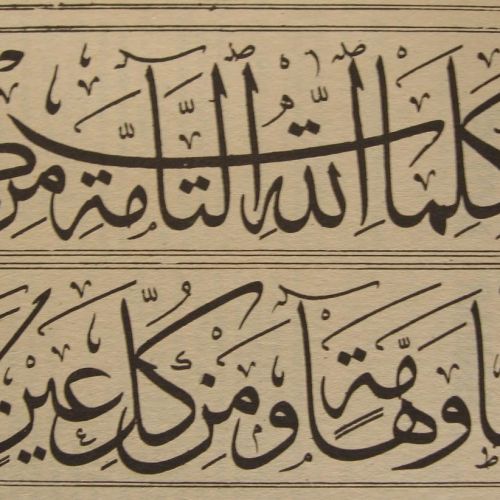 كَلِمَاتِ اللّٰهِ التَّامَّةِ مِنْ
وَهَامَّةٍ وَمِنْ كُلِّ عَيْنٍ